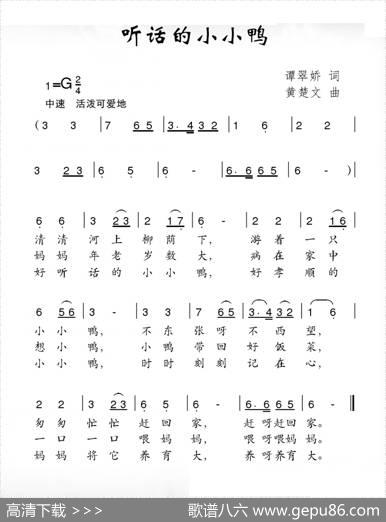 听话的小小鸭
1=G 2/4
谭翠娇 词
中速 活泼可爱地
黄楚文 曲
(3 3 | 7 6 5 | 3. 4 3 2 | 1 6 | 2 2 |
3 2 3 | 6 5 | 6 - | 6. 6 6 5 | 6 -) |
6 6 | 3 2 3 | 2 1 7 | 6 - | 2 2 | 2 1 6 |
清清河上柳荫下, 游着一只
妈妈年老岁数大, 病在家中
好听话的小小鸭, 好孝顺的
6 5 6 | 3 - | 3 3 | 7 6 5 | 3. 4 3 2 | 1 6 |
小小鸭, 不东张呀不西望,
想小鸭, 小鸭带回好饭菜,
小小鸭, 时时刻刻记在心,
2 2 | 3 2 3 | 6 5 | 6 - | 6. 6 6 5 | 6 - ‖
匆匆忙忙赶回家, 赶呀赶回家。
一口一口喂妈妈, 喂呀喂妈妈。
妈妈将它养育大, 养呀养育大。
高清下载 >>>
歌谱八六 www.gepu86.com